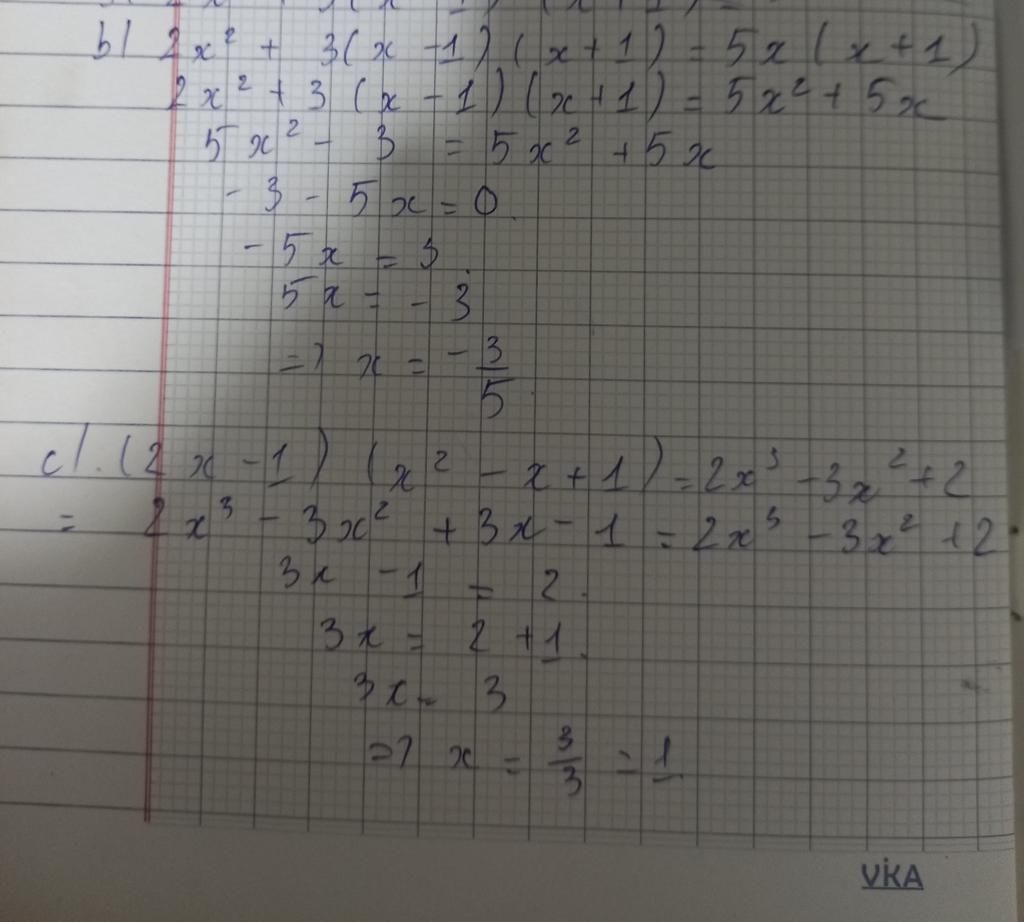 b) 2x² + 3(x - 1)(x + 1) = 5x(x + 1)
2x² + 3(x - 1)(x + 1) = 5x² + 5x
5x² - 3 = 5x² + 5x
- 3 - 5x = 0.
- 5x = 3.
5x = - 3
=> x = - 3/5
c). (2x - 1)(x² - x + 1) = 2x³ - 3x² + 2
= 2x³ - 3x² + 3x - 1 = 2x³ - 3x² + 2
3x - 1 = 2.
3x = 2 + 1.
3x = 3
=> x = 3/3 = 1
VIKA